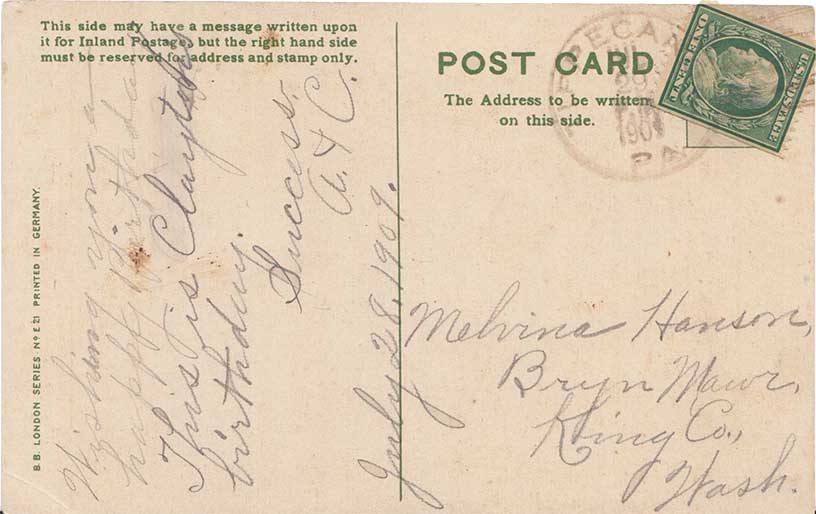 This side may have a message written upon
it for Inland Postage, but the right hand side
must be reserved for address and stamp only.
POST CARD
The Address to be written
on this side.
ONE CENT
U.S. POSTAGE
PA
B.B. LONDON SERIES No E 21 PRINTED IN GERMANY.
Wishing you a
happy Birthday
This is Clayton's
birthday.
Success.
A & C.
July 28, 1909.
Melvina Hanson,
Bryn Mawr,
King Co.,
Wash.